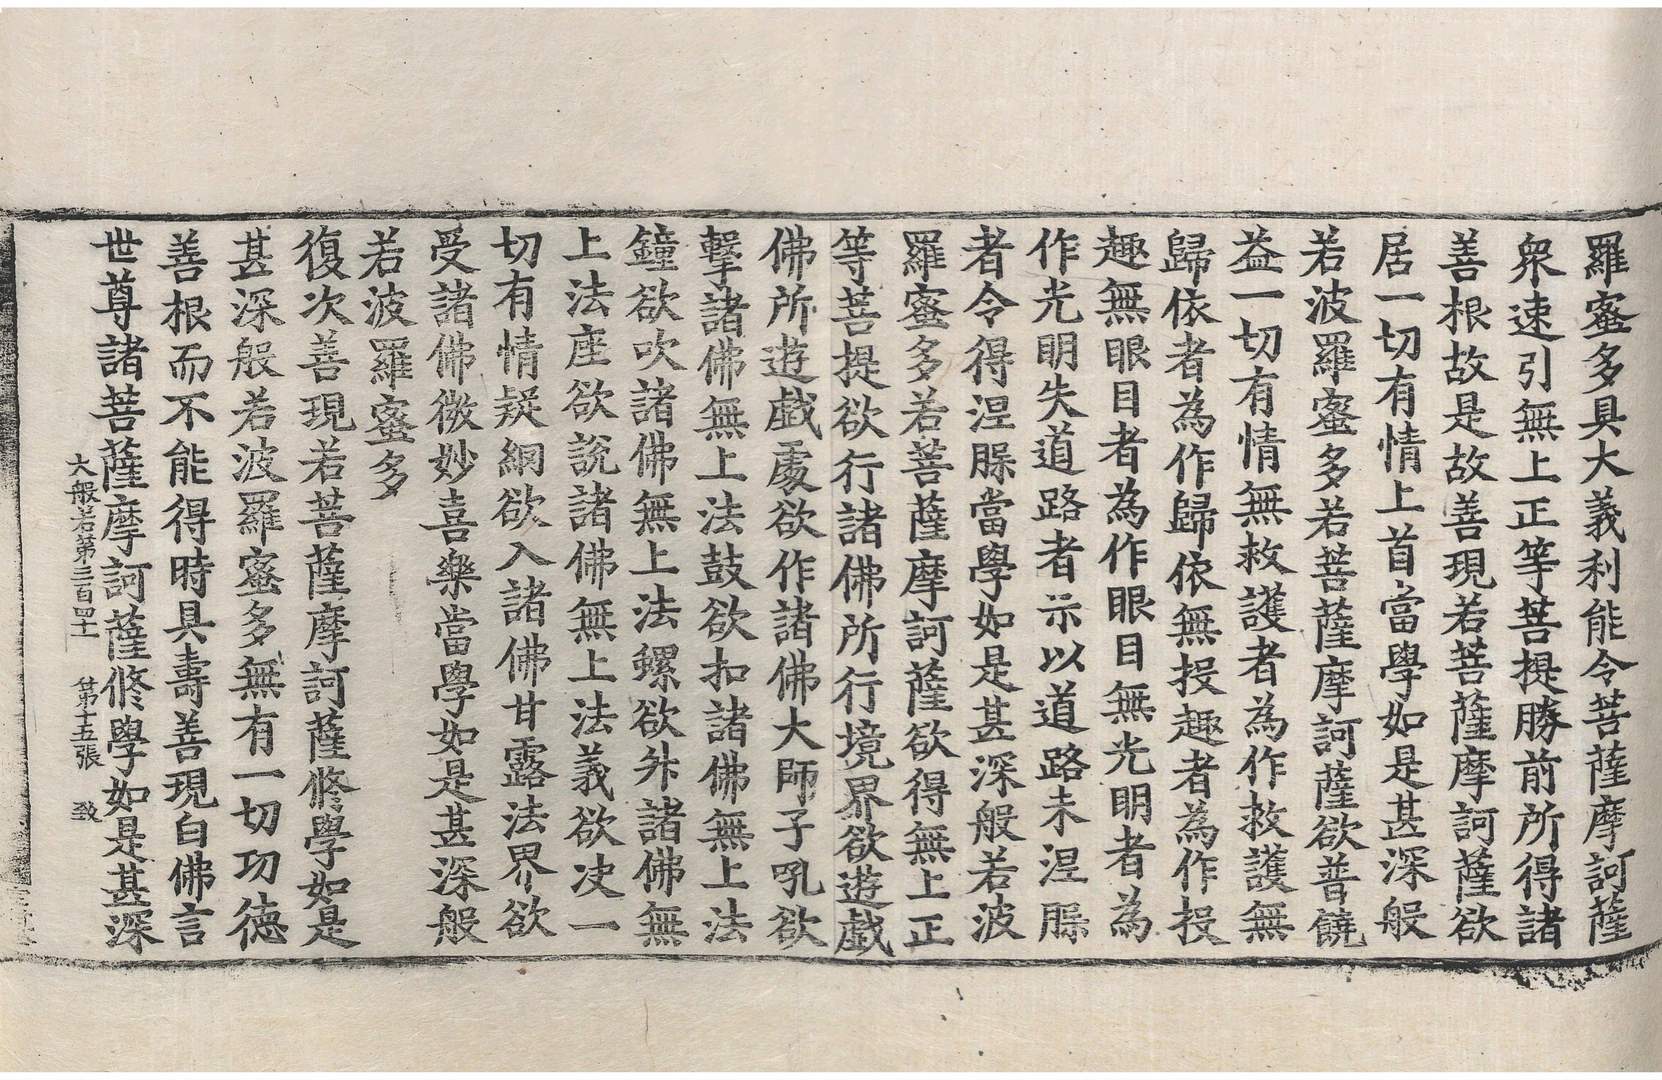 羅蜜多具大義利能令菩薩摩訶薩
衆速引無上正等菩提勝前所得諸
善根故是故善現若菩薩摩訶薩欲
居一切有情上首當學如是甚深般
若波羅蜜多若菩薩摩訶薩欲普饒
益一切有情無救護者為作救護無
歸依者為作歸依無投趣者為作投
趣無眼目者為作眼目無光明者為
作光明失道路者示以道路未涅槃
者令得涅槃當學如是甚深般若波
羅蜜多若菩薩摩訶薩欲得無上正
等菩提欲行諸佛所行境界欲遊戲
佛所遊戲處欲作諸佛大師子吼欲
擊諸佛無上法鼓欲扣諸佛無上法
鐘欲吹諸佛無上法螺欲昇諸佛無
上法座欲說諸佛無上法義欲决一
切有情疑網欲入諸佛甘露法界欲
受諸佛微妙喜樂當學如是甚深般
若波羅蜜多
復次善現若菩薩摩訶薩修學如是
甚深般若波羅蜜多無有一切功德
善根而不能得時具壽善現白佛言
世尊諸菩薩摩訶薩修學如是甚深
大般若第三百四十一 第十五張 致